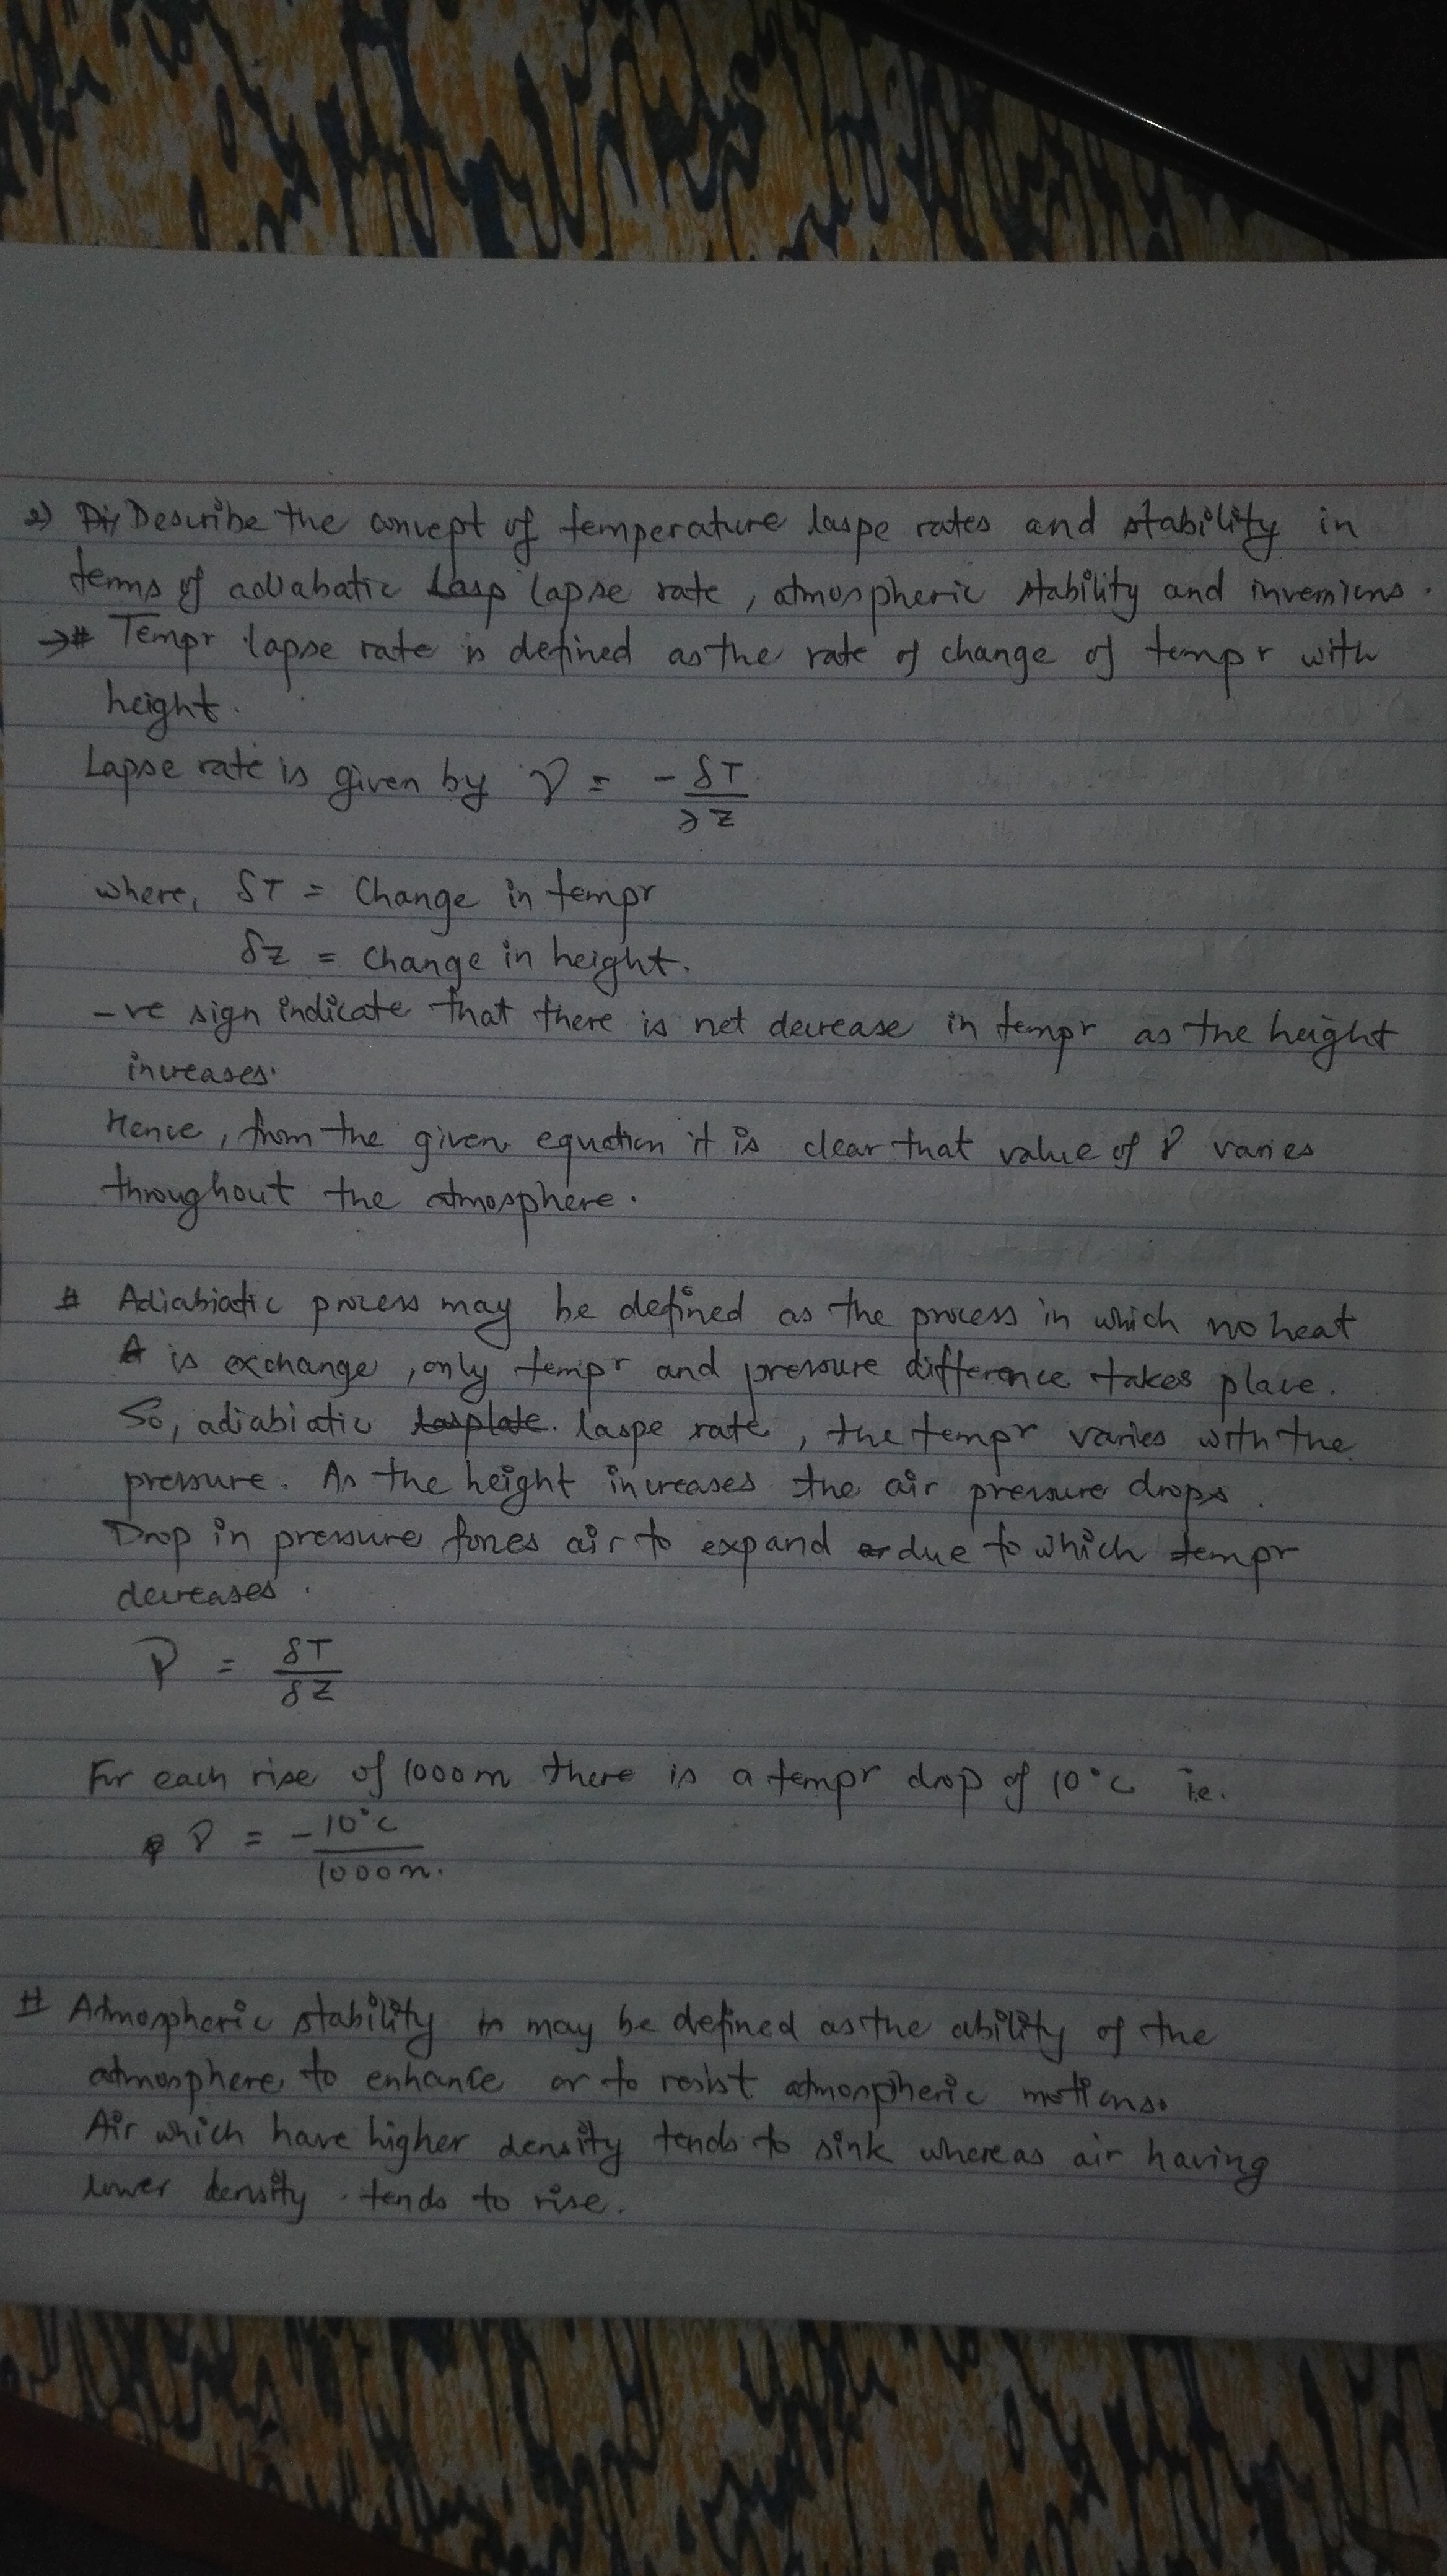 2) Describe the concept of temperature laspe rates and stability in
terms of adiabatic lapse rate, atmospheric stability and inversions.
→# Tempr lapse rate is defined as the rate of change of tempr with
height.
Lapse rate is given by Γ = -δT/∂Z
where, δT = Change in tempr
δZ = Change in height.
-ve sign indicate that there is net decrease in tempr as the height
increases.
Hence, from the given equation it is clear that value of Γ varies
throughout the atmosphere.
# Adiabiatic process may be defined as the process in which no heat
is exchange, only tempr and pressure difference takes place.
So, adiabiatic laspe rate, the tempr varies with the
pressure. As the height increases the air pressure drops.
Drop in pressure forces air to expand due to which tempr
decreases.
Γ = δT/δZ
For each rise of 1000m there is a tempr drop of 10°C i.e.
Γ = -10°C/1000m.
# Atmospheric stability may be defined as the ability of the
atmosphere to enhance or to resist atmospheric motions.
Air which have higher density tends to sink whereas air having
lower density tends to rise.